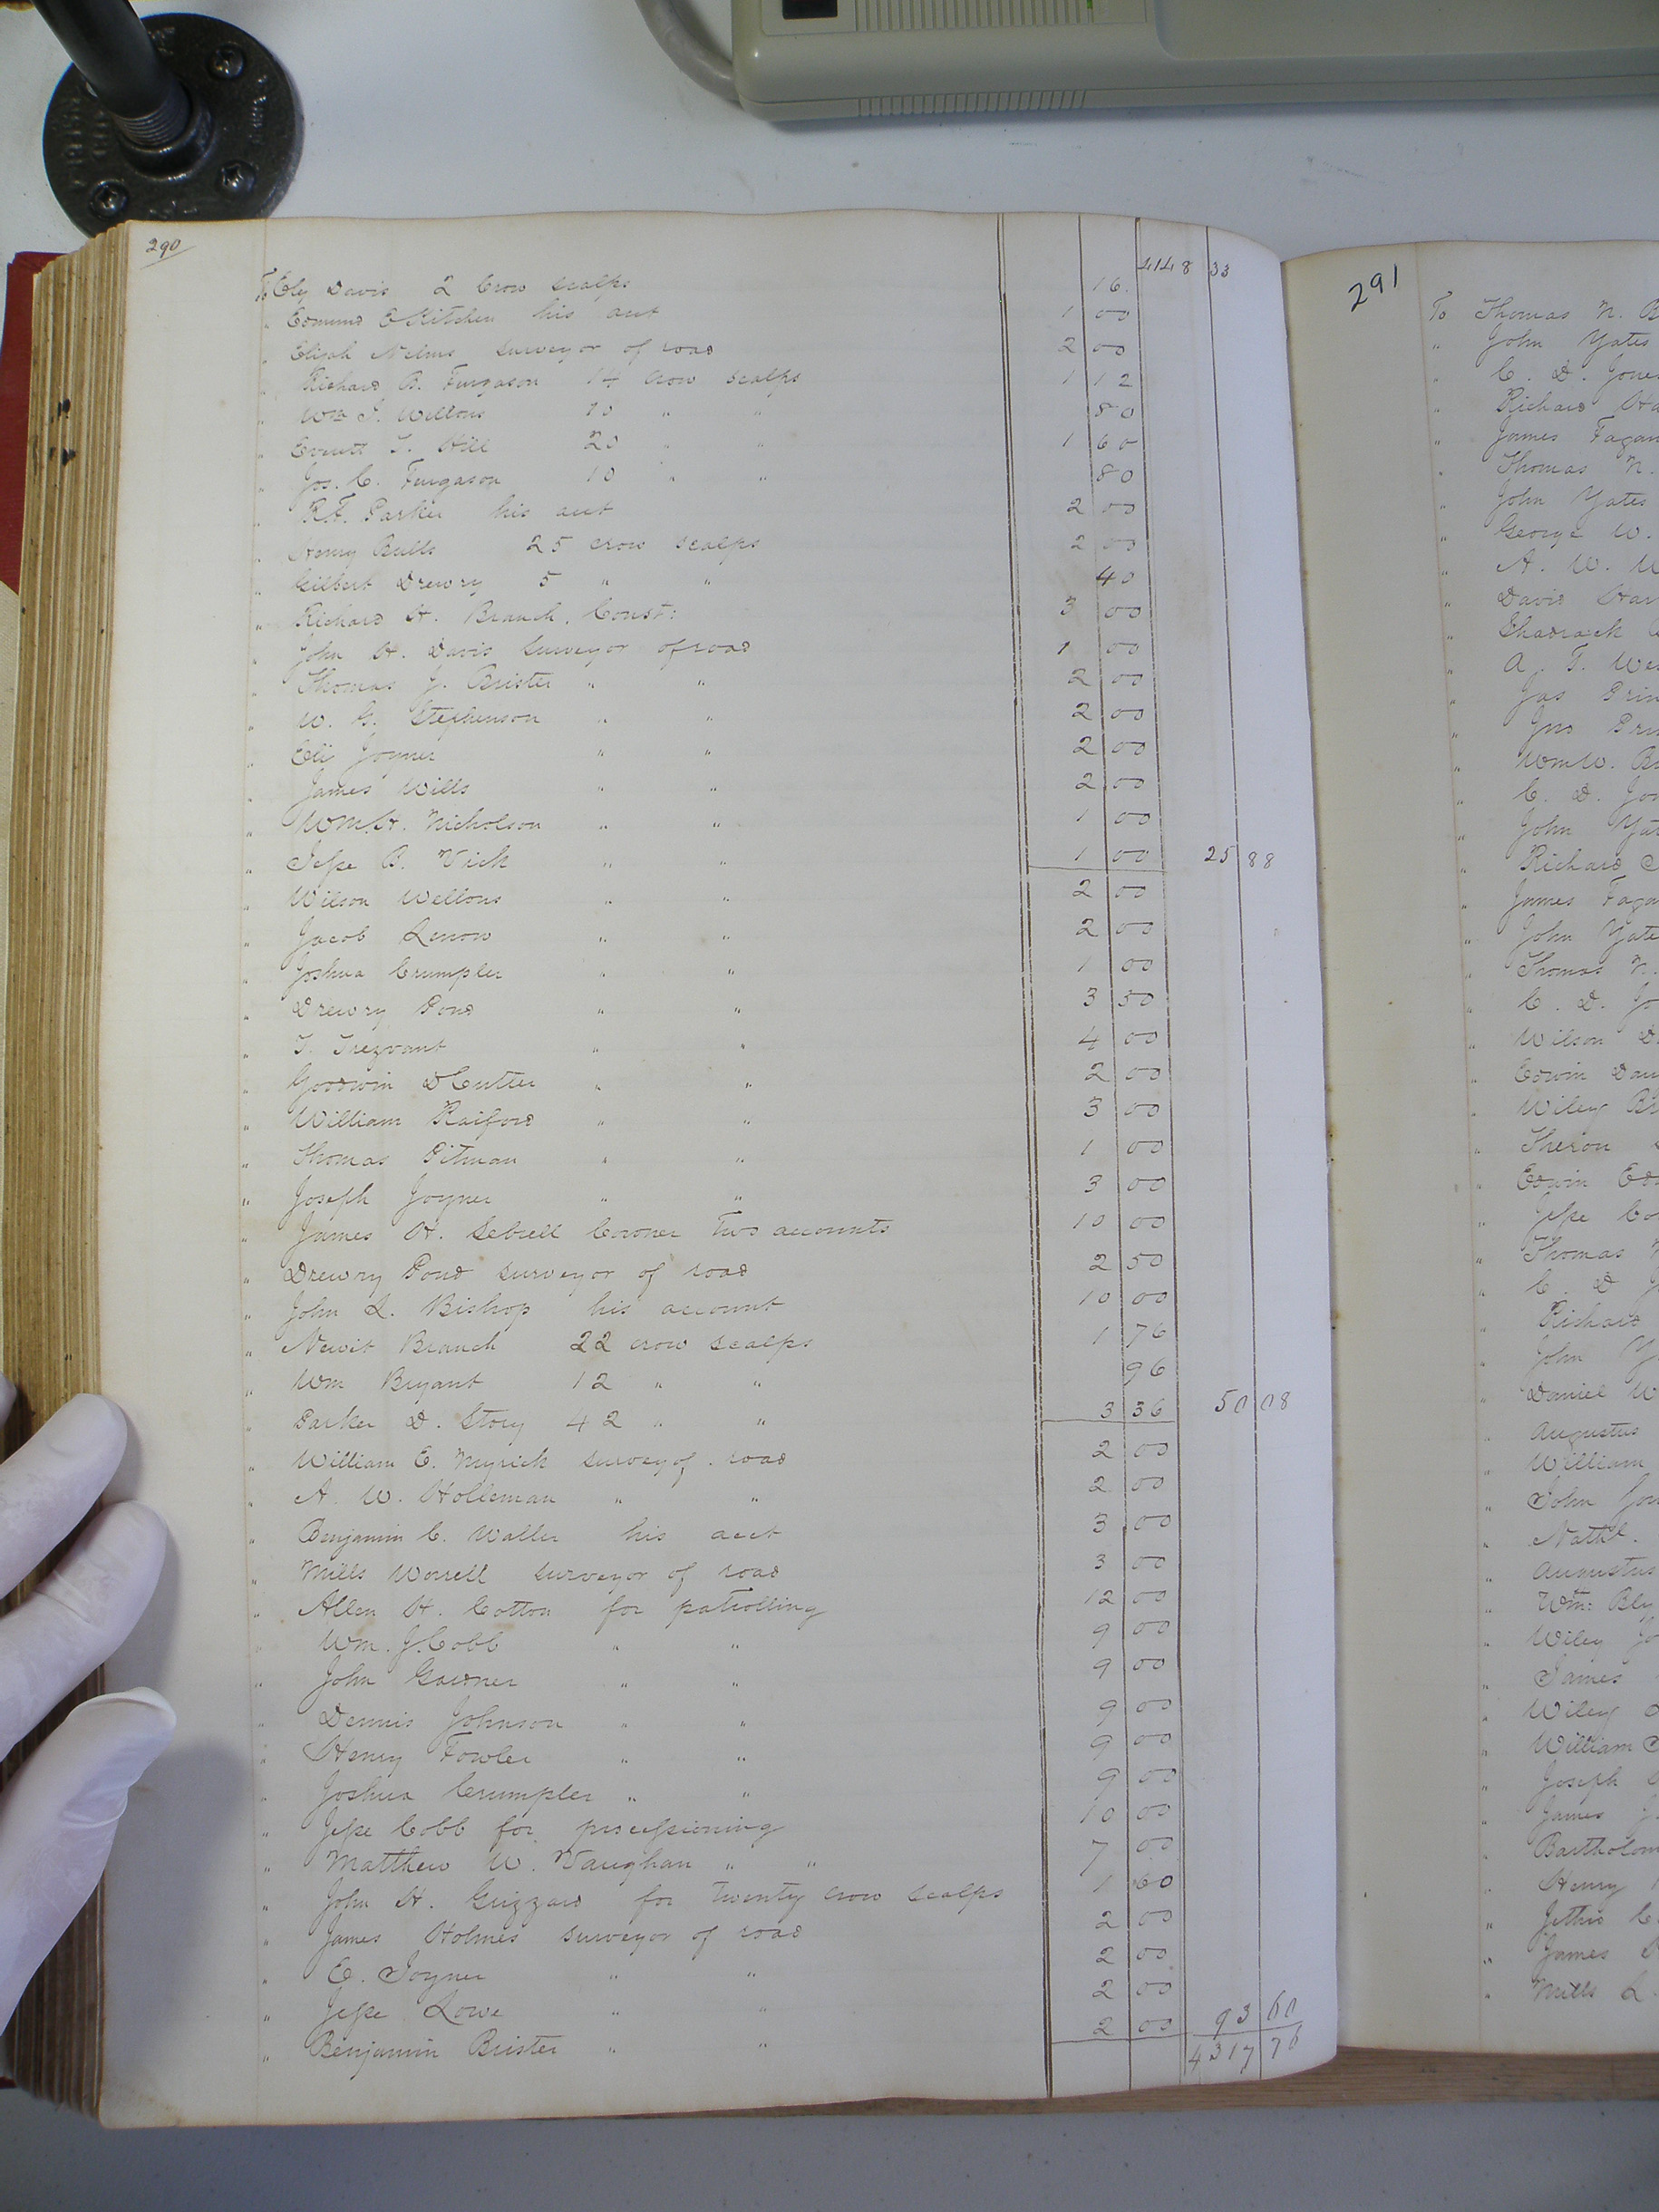 290
4148 33
To Ely Davis 2 Crow Scalps 16
" Edmund C Kitchen his acct 1 00
" Elijah Nelms surveyor of road 2 00
" Richard B. Furgason 14 crow scalps 1 12
" Wm J. Wellons 10 " " 80
" Everett T. Hill 20 " " 1 60
" Jos. C. Furgason 10 " " 80
" R.F. Parker his acct 2 00
" Henry Bulls 25 crow scalps 2 00
" Gilbert Drewry 5 " " 40
" Richard H. Branch. Const: 3 00
" John H. Davis Surveyor of road 1 00
" Thomas J. Brister " " 2 00
" W. G. Stephenson " " 2 00
" Eli Joyner " " 2 00
" James Wills " " 2 00
" Wm. H. Nicholson " " 1 00
" Jesse B. Vick " " 1 00 25 88
" Wilson Wellons " " 2 00
" Jacob Lenow " " 2 00
" Joshua Crumpler " " 1 00
" Drewry Pond " " 3 50
" T. Trezvant " " 4 00
" Goodwin " " 2 00
" William Raiford " " 3 00
" Thomas Pitman " " 1 00
" Joseph Joyner " " 3 00
" James H. Sebrell Coroner two accounts 10 00
" Drewry Pond surveyor of road 2 50
" John L. Bishop his account 10 00
" Newit Branch 22 crow scalps 1 76
" Wm Bryant 12 " " 96
" Parker D. Story 42 " " 3 36 50 08
" William E. Myrick survey of road 2 00
" A. W. Holleman " " 2 00
" Benjamin C. Waller his acct 3 00
" Mills Worrell surveyor of road 3 00
" Allen H. Cotton for patrolling 12 00
" Wm. J. Cobb " " 9 00
" John Gardner " " 9 00
" Dennis Johnson " " 9 00
" Henry Fowler " " 9 00
" Joshua Crumpler " " 9 00
" Jesse Cobb for processioning 10 00
" Matthew W. Vaughan " " 7 00
" John H. Grizzard for twenty crow scalps 1 60
" James Holmes surveyor of road 2 00
" E. Joyner " " 2 00
" Jesse Lowe " " 2 00
" Benjamin Brister " " 2 00 93 60
4317 76
291
To Thomas N. B
" John Yates
" C. D. Jone
" Richard Ha
" James Fagan
" Thomas N.
" John Yates
" George W.
" A. W. W
" David Har
" Shadrack
" A. T. We
" Jas Prin
" Jno Pri
" Wm W. B
" C. D. Jon
" John Yat
" Richard
" James Faga
" John Yate
" Thomas N.
" C. D. Jo
" Wilson D
" Edwin Dau
" Wiley Br
" Theron
" Edwin Ed
" Jesse Co
" Thomas
" C. D J
" Richard
" John Y
" Daniel W
" Augustus
" William
" John Jon
" Nathl.
" Augustus
" Wm: Bly
" Wiley Jo
" James
" Wiley
" William
" Joseph
" James J
" Bartholom
" Henry
" Jethro C
" James
" Mills L.